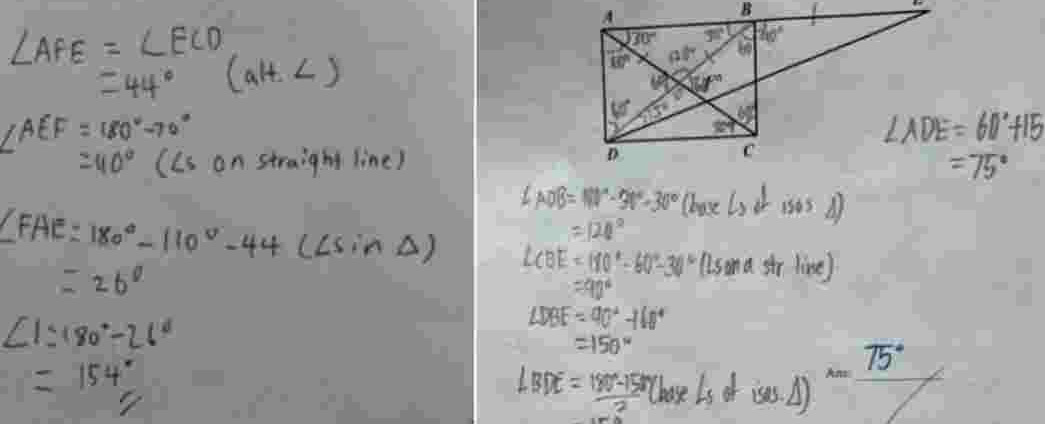 ∠AFE = ∠ECD
= 44° (alt. ∠)
∠AEF = 180° - 70°
= 40° (∠s on straight line)
∠FAE = 180° - 110° - 44 (∠s in Δ)
= 26°
∠1 = 180° - 26°
= 154°
A
B
30°
120°
60°
D
C
∠ADE = 60° + 15
= 75°
∠AOB = 180° - 30° - 30° (base ∠s of isos Δ)
= 120°
∠CBE = 180° - 60° - 30° (∠s on a str. line)
= 90°
∠DBE = 90° + 60°
= 150°
∠BDE = 180° - 150° (base ∠s of isos. Δ)
2
= 15°
Ans: 75°